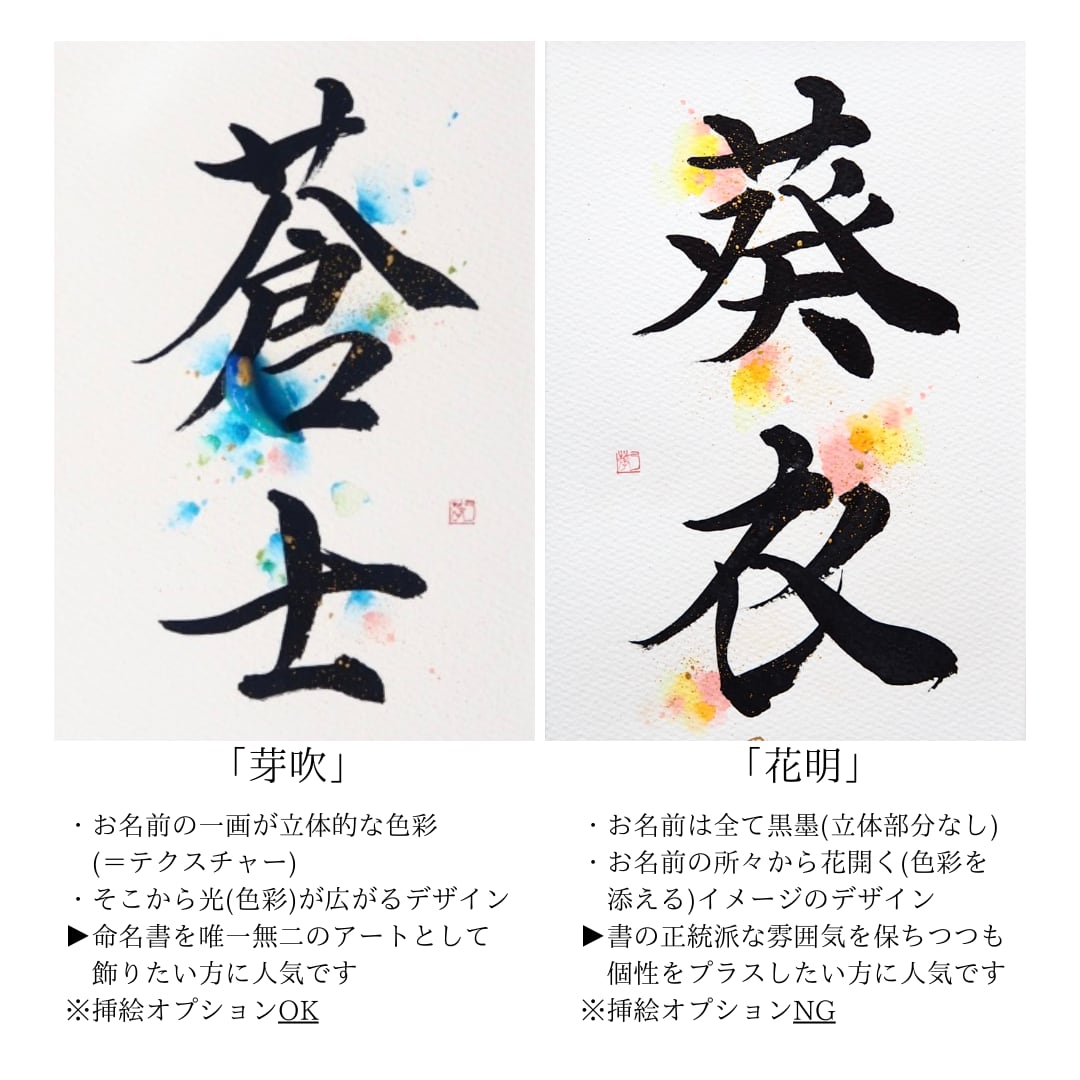 蒼士
「芽吹」
・お名前の一画が立体的な色彩
(＝テクスチャー)
・そこから光(色彩)が広がるデザイン
▶命名書を唯一無二のアートとして
飾りたい方に人気です
※挿絵オプションOK
葵衣
「花明」
・お名前は全て黒墨(立体部分なし)
・お名前の所々から花開く(色彩を
添える)イメージのデザイン
▶書の正統派な雰囲気を保ちつつも
個性をプラスしたい方に人気です
※挿絵オプションNG